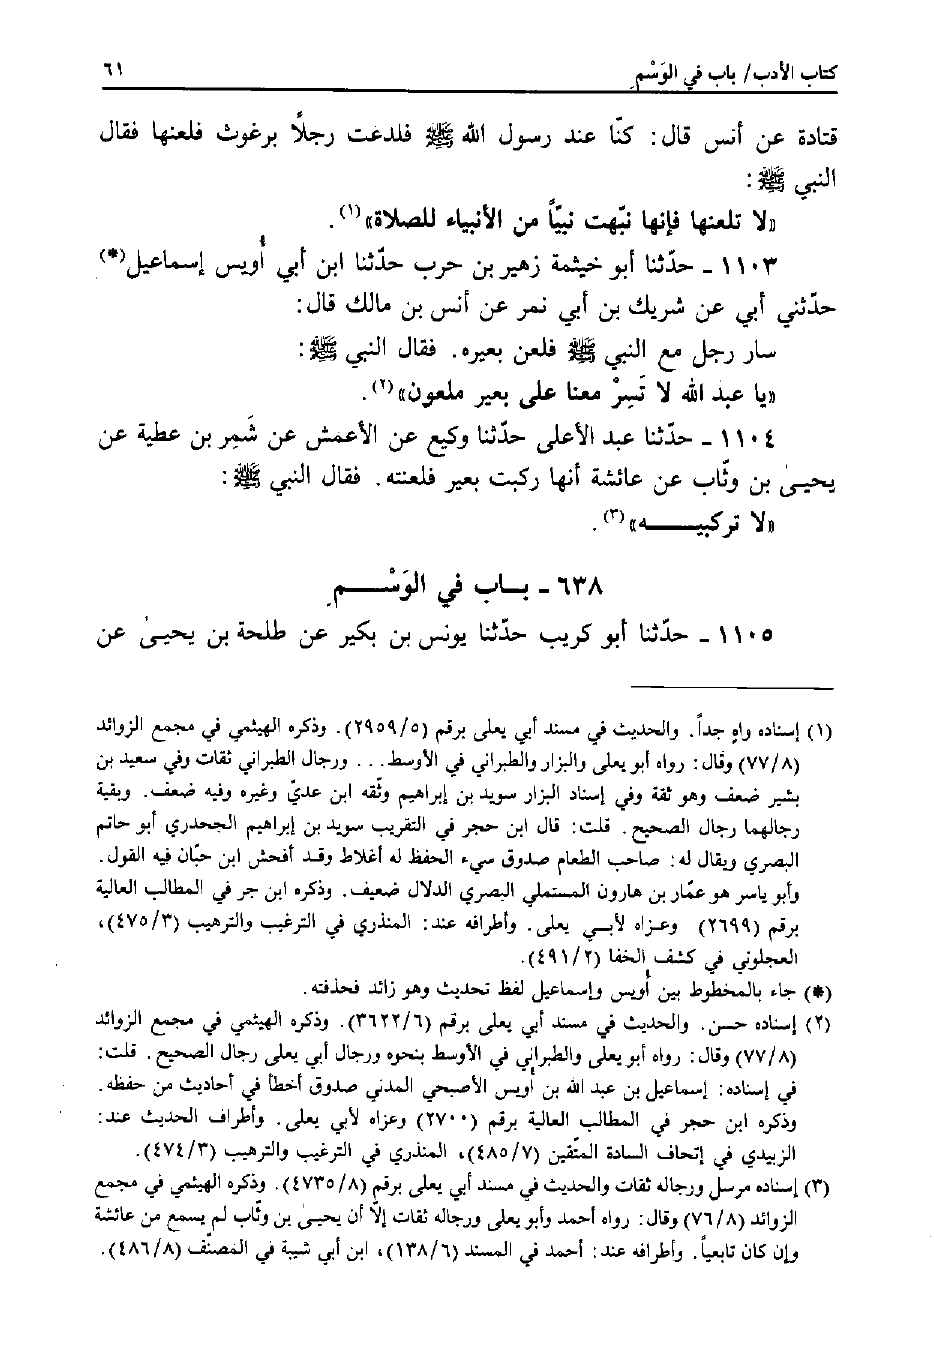 كتاب الأدب/ باب في الوَسْمِ ٦١
قتادة عن أنس قال: كنّا عند رسول الله ﷺ فلدغت رجلاً برغوث فلعنها فقال
النبي ﷺ:
«لا تلعنها فإنها نبّهت نبيّاً من الأنبياء للصلاة»(١).
١١٠٣ - حدّثنا أبو خيثمة زهير بن حرب حدّثنا ابن أبي أُويس إسماعيل(*)
حدّثني أبي عن شريك بن أبي نمر عن أنس بن مالك قال:
سار رجل مع النبي ﷺ فلعن بعيره. فقال النبي ﷺ:
«يا عبد الله لا تَسِرْ معنا على بعير ملعون»(٢).
١١٠٤ - حدّثنا عبد الأعلى حدّثنا وكيع عن الأعمش عن شَمِر بن عطية عن
يحيىٰ بن وثّاب عن عائشة أنها ركبت بعير فلعنته. فقال النبي ﷺ:
«لا تركبيـــه»(٣).
٦٣٨ - بـاب في الوَسْــمِ
١١٠٥ - حدّثنا أبو كريب حدّثنا يونس بن بكير عن طلحة بن يحيىٰ عن
(١) إسناده واهٍ جداً. والحديث في مسند أبي يعلى برقم (٢٩٥٩/٥). وذكره الهيثمي في مجمع الزوائد
(٧٧/٨) وقال: رواه أبو يعلى والبزار والطبراني في الأوسط... ورجال الطبراني ثقات وفي سعيد بن
بشير ضعف وهو ثقة وفي إسناد البزار سويد بن إبراهيم وثّقه ابن عديّ وغيره وفيه ضعف. وبقية
رجالهما رجال الصحيح. قلت: قال ابن حجر في التقريب سويد بن إبراهيم الجحدري أبو حاتم
البصري ويقال له: صاحب الطعام صدوق سيء الحفظ له أغلاط وقد أفحش ابن حبّان فيه القول.
وأبو ياسر هو عمّار بن هارون المستملي البصري الدلال ضعيف. وذكره ابن جر في المطالب العالية
برقم (٢٦٩٩) وعزاه لأبي يعلى. وأطرافه عند: المنذري في الترغيب والترهيب (٤٧٥/٣)،
العجلوني في كشف الخفا (٤٩١/٢).
(*) جاء بالمخطوط بين أُويس وإسماعيل لفظ تحديث وهو زائد فحذفته.
(٢) إسناده حسن. والحديث في مسند أبي يعلى برقم (٣٦٢٢/٦). وذكره الهيثمي في مجمع الزوائد
(٧٧/٨) وقال: رواه أبو يعلى والطبراني في الأوسط بنحوه ورجال أبي يعلى رجال الصحيح. قلت:
في إسناده: إسماعيل بن عبد الله بن أُويس الأصبحي المدني صدوق أخطأ في أحاديث من حفظه.
وذكره ابن حجر في المطالب العالية برقم (٢٧٠٠) وعزاه لأبي يعلى. وأطراف الحديث عند:
الزبيدي في إتحاف السادة المتّقين (٤٨٥/٧)، المنذري في الترغيب والترهيب (٤٧٤/٣).
(٣) إسناده مرسل ورجاله ثقات والحديث في مسند أبي يعلى برقم (٤٧٣٥/٨). وذكره الهيثمي في مجمع
الزوائد (٧٦/٨) وقال: رواه أحمد وأبو يعلى ورجاله ثقات إلاّ أن يحيىٰ بن وثّاب لم يسمع من عائشة
وإن كان تابعياً. وأطرافه عند: أحمد في المسند (١٣٨/٦)، ابن أبي شيبة في المصنّف (٤٨٦/٨).